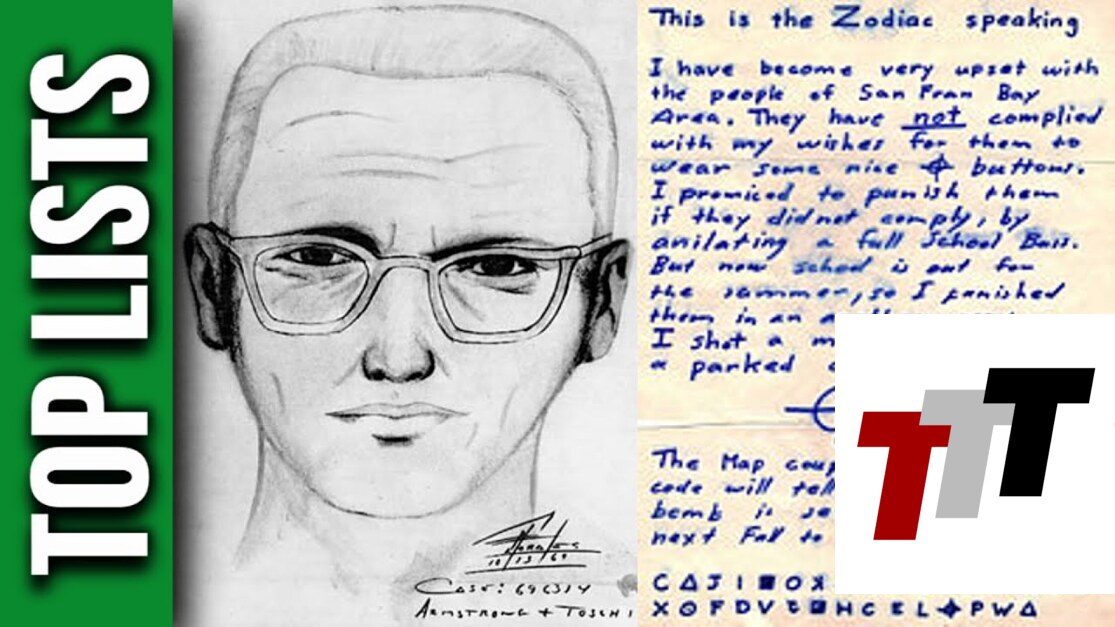 TOP LISTS
This is the Zodiac speaking
I have become very upset with
the people of San Fran Bay
Area. They have not complied
with my wishes for them to
wear some nice ⌖ buttons.
I promiced to punish them
if they did not comply, by
anilating a full School Buss.
But now school is out for
the summer, so I punished
them in an
I shot a m
a parked
The Map coup
code will tell
bomb is se
next Fall to
C Δ J I ■ O X
X ⊙ F D V H C E L ⌖ P W Δ
Case: 696314
Armstrong + Toschi
TTT